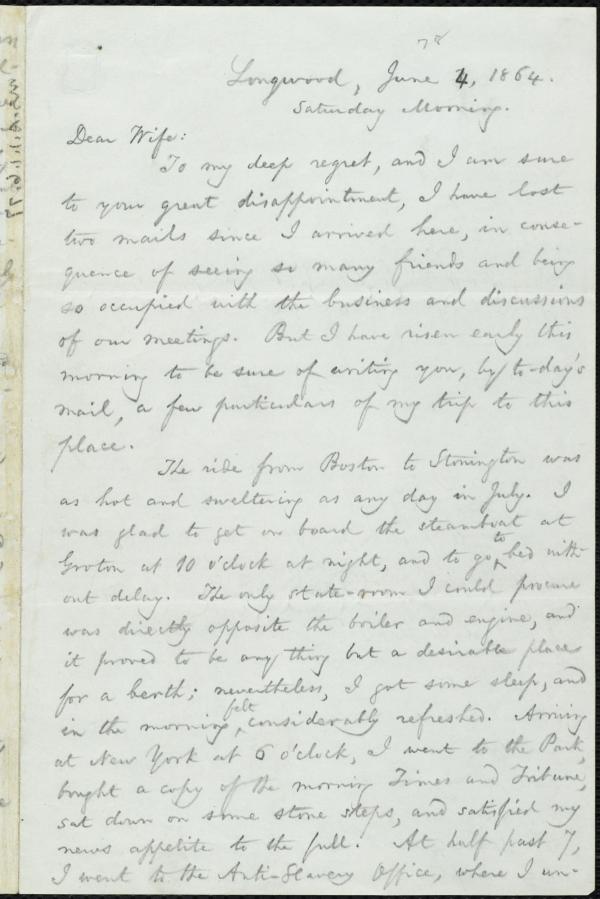 78
Longwood, June 4, 1864.
Saturday Morning.
Dear Wife:
To my deep regret, and I am sure
to your great disappointment, I have lost
two mails since I arrived here, in conse-
quence of seeing so many friends and being
so occupied with the business and discussions
of our meetings. But I have risen early this
morning to be sure of writing you, by to-day's
mail, a few particulars of my trip to this
place.
The ride from Boston to Stonington was
as hot and sweltering as any day in July. I
was glad to get on board the steamboat at
Groton at 10 o'clock at night, and to go to bed with-
out delay. The only state-room I could procure
was directly opposite the boiler and engine, and
it proved to be any thing but a desirable place
for a berth; nevertheless, I got some sleep, and
in the morning felt considerably refreshed. Arriving
at New York at 6 o'clock, I went to the Park,
bought a copy of the morning Times and Tribune,
sat down on some stone steps, and satisfied my
news appetite to the full. At half past 7,
I went to the Anti-Slavery Office, where I un-